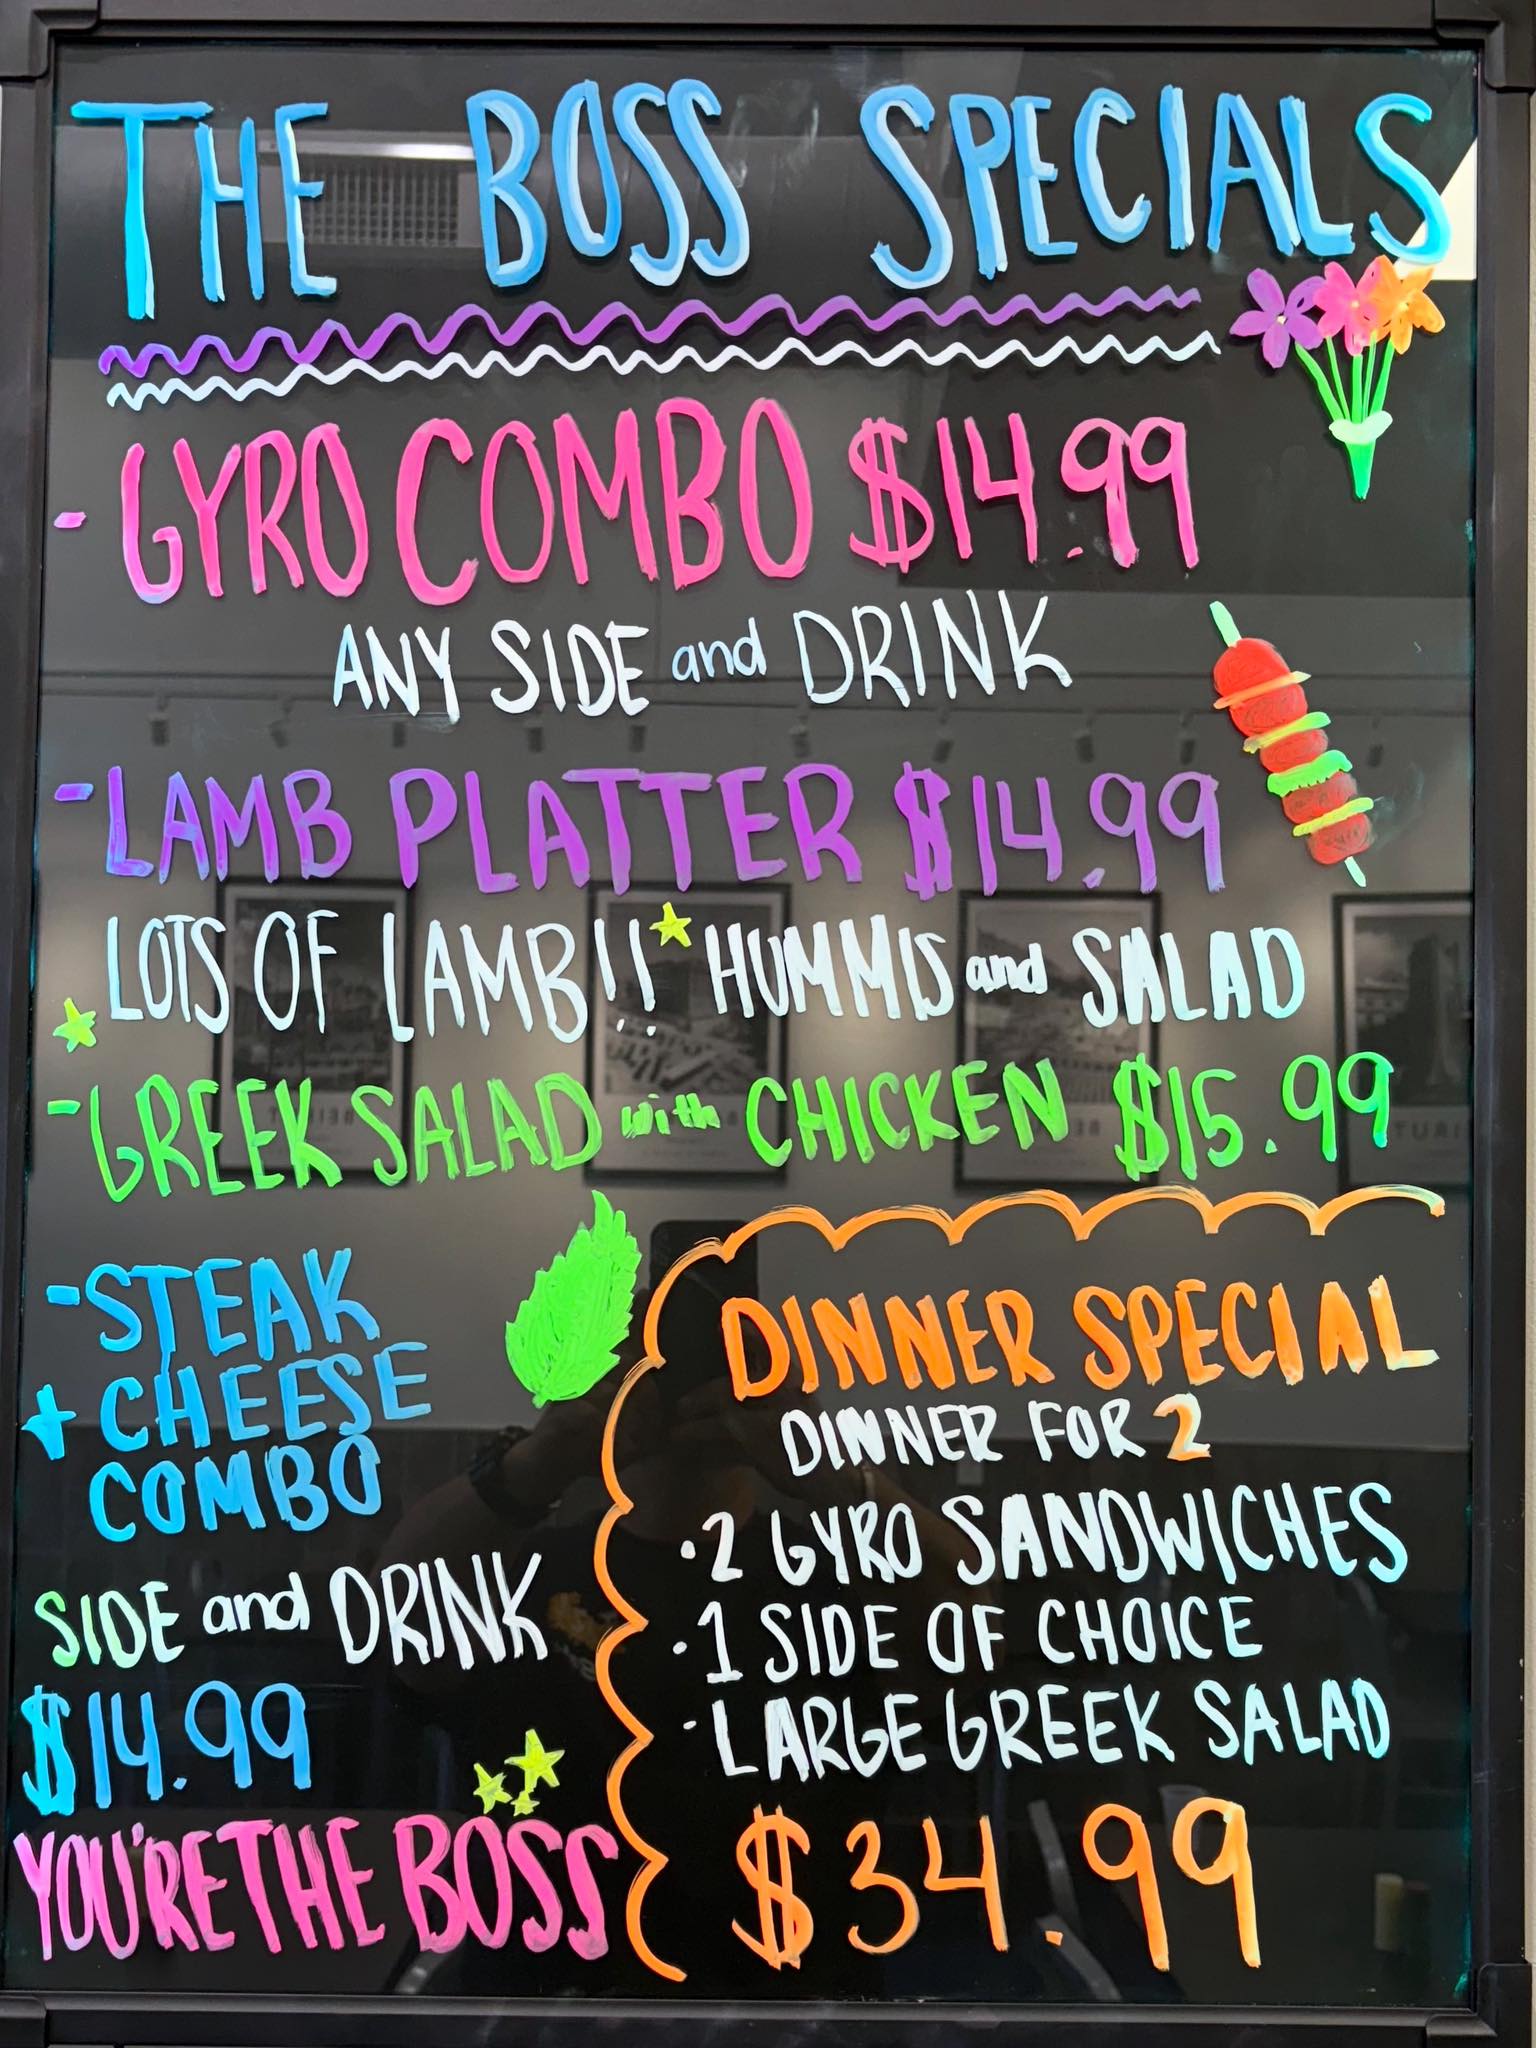 THE BOSS SPECIALS
- GYRO COMBO $14.99
ANY SIDE and DRINK
- LAMB PLATTER $14.99
LOTS OF LAMB!! HUMMIS and SALAD
- GREEK SALAD with CHICKEN $15.99
- STEAK
+ CHEESE
COMBO
SIDE and DRINK
$14.99
YOU'RE THE BOSS
DINNER SPECIAL
DINNER FOR 2
· 2 GYRO SANDWICHES
· 1 SIDE OF CHOICE
· LARGE GREEK SALAD
$34.99